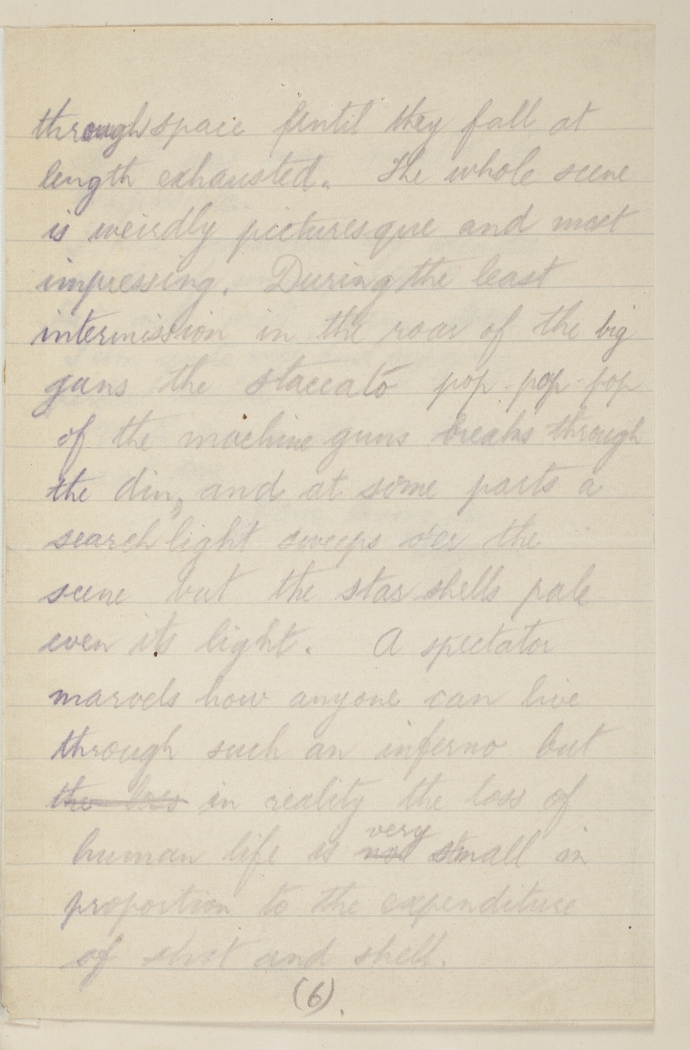 through space until they fall at
length exhausted. The whole scene
is weirdly picturesque and most
impressing. During the least
intermission in the roar of the big
guns the staccato pop-pop-pop
of the machine guns breaks through
the din, and at some parts a
searchlight sweeps o'er the
scene but the star shells pale
even its light. A spectator
marvels how anyone can live
through such an inferno but
the loss in reality the loss of
human life is not very small in
proportion to the expenditure
of shot and shell.
(6).